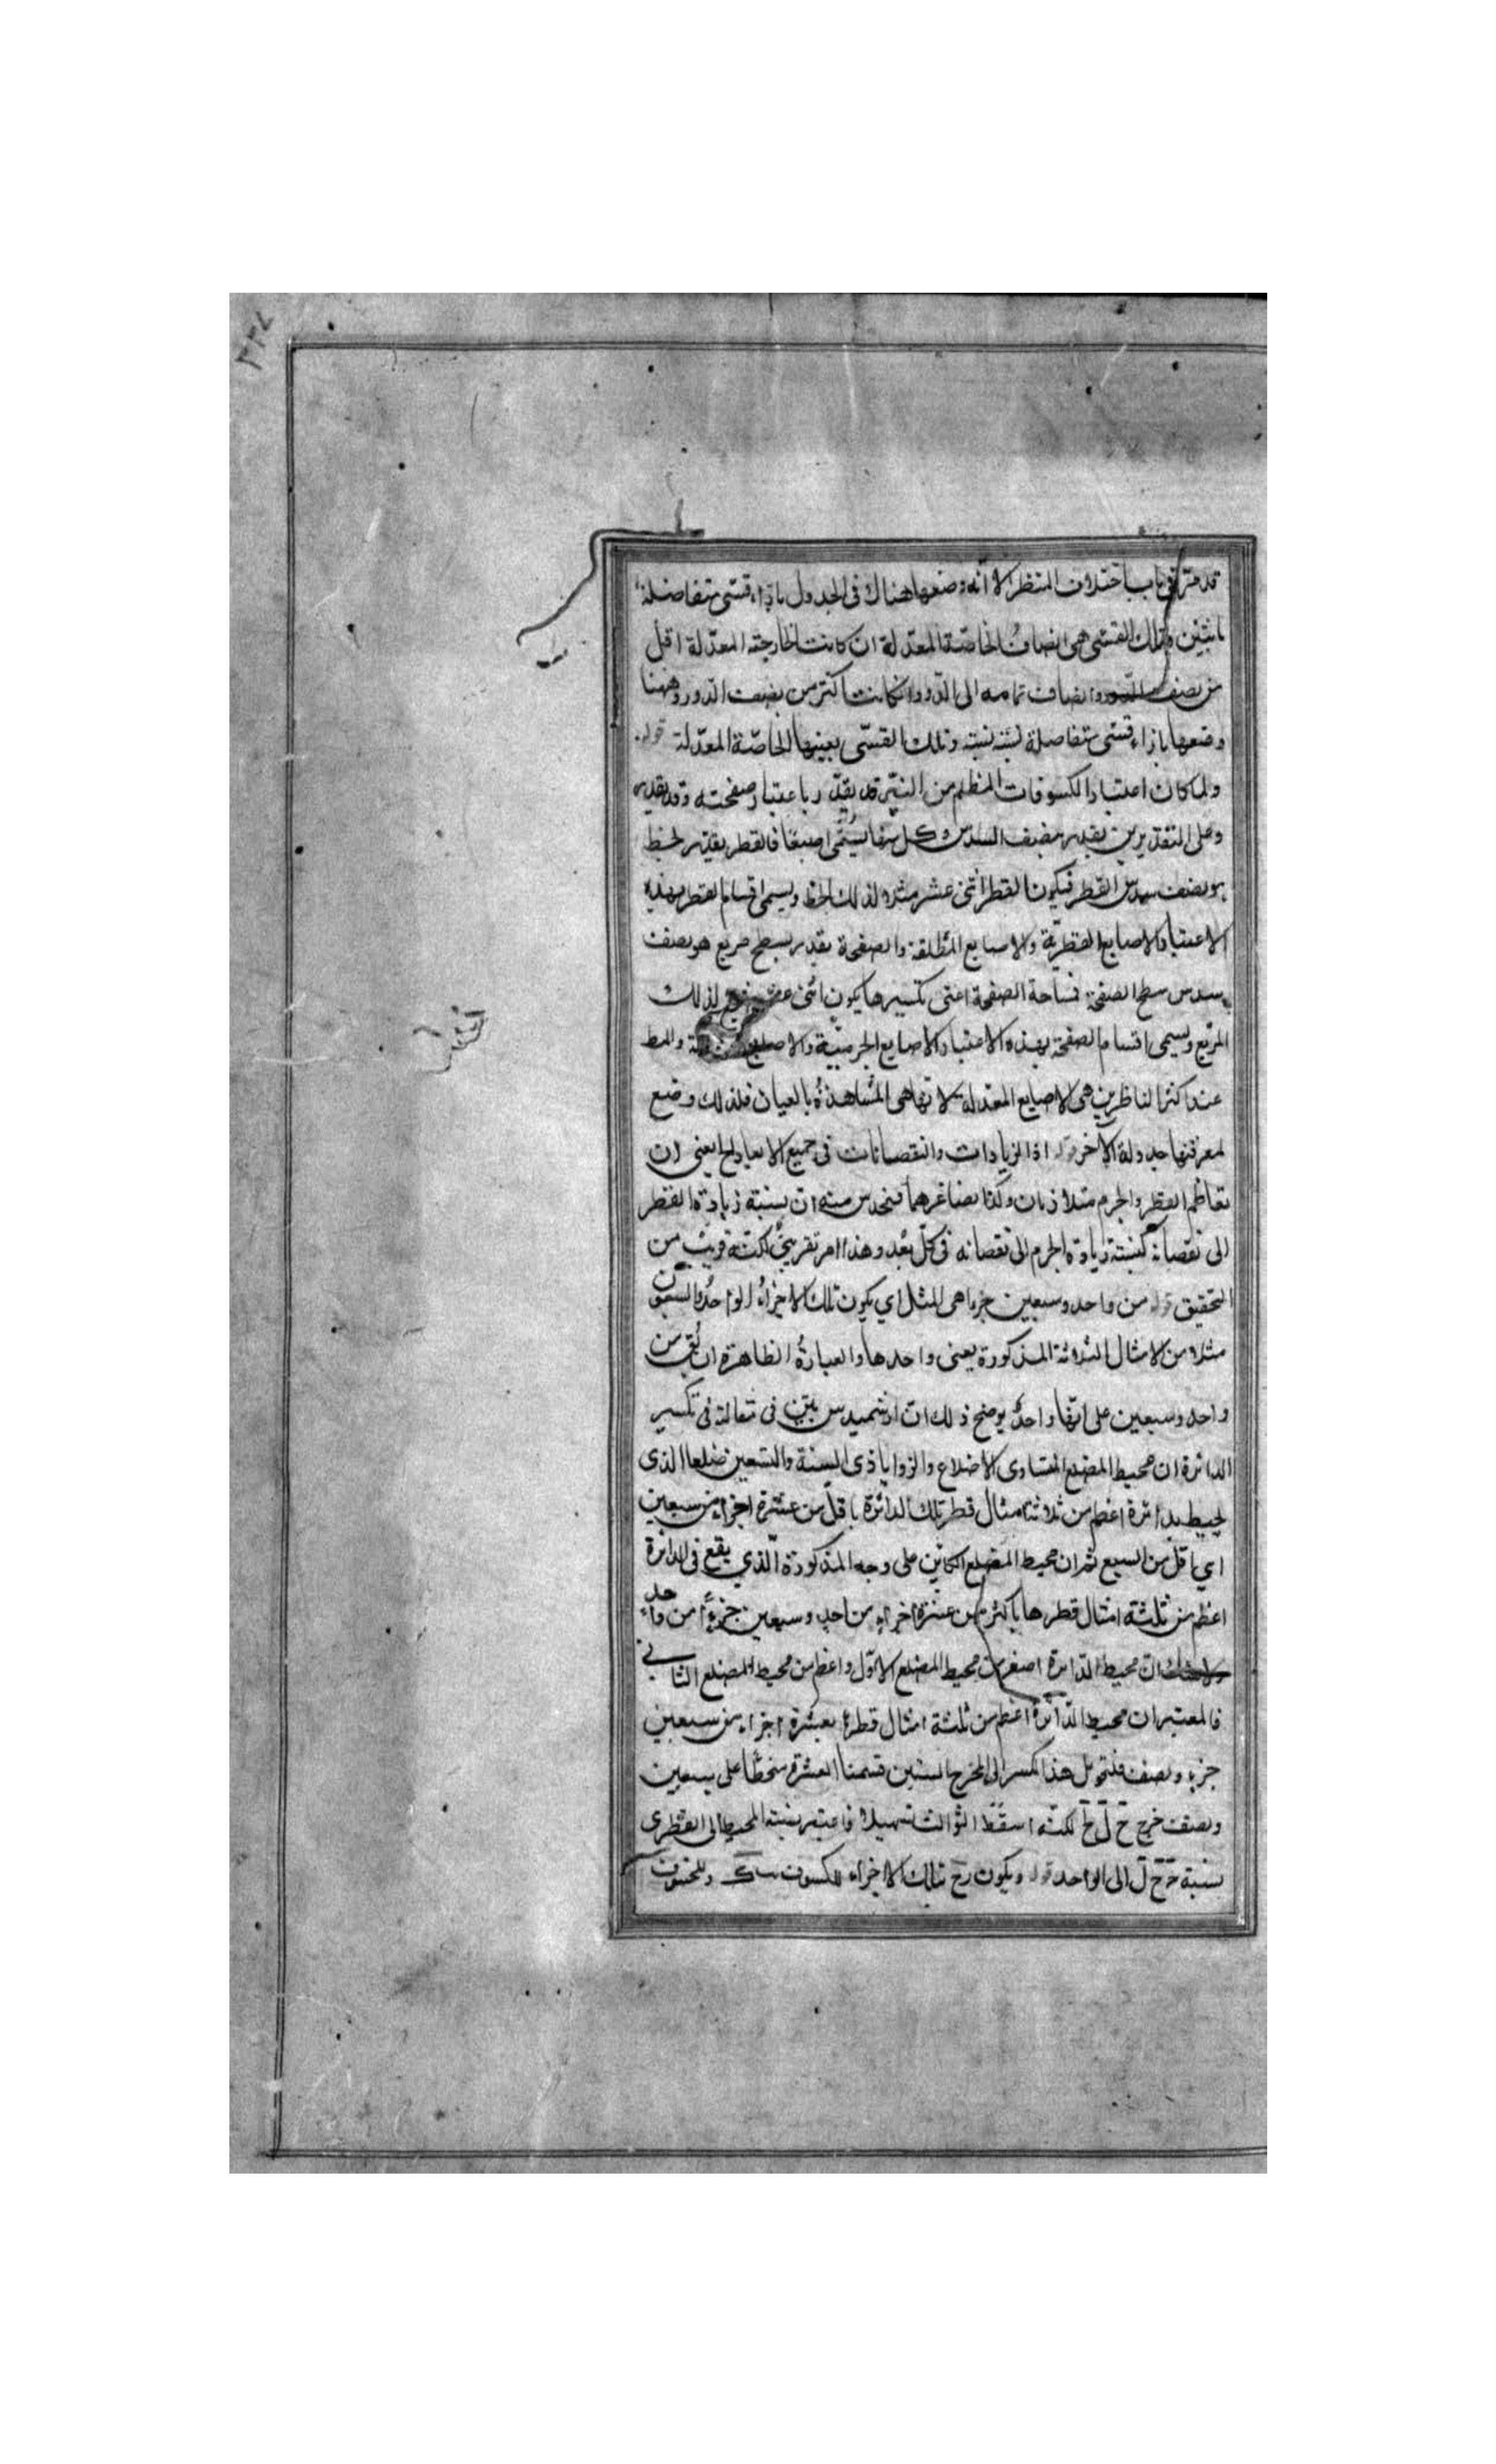 قد مرّ في باب اختلاف المنظر الا انّه وضعها هناك فى الجدول بازاء قسىّ متفاضلة
باثنين وتلك القسىّ هى انصاف الخاصّة المعدّلة ان كانت الخاصّة المعدّلة اقلّ
من نصف الدّور وانصاف تمامه الى الدّور ان كانت اكثر من نصف الدّور وههنا
وضعها بازاء قسىّ متفاضلة بستّة ستّة وتلك القسىّ بعينها الخاصّة المعدّلة قوله
ولما كان اعتبار الكسوفات المظلم من النيّر قد يقدّر باعتبار صفحته وقد يقدر
وعلى التقديرين يقدر بنصف السدس وكل منها يسمّى اصبعًا فالقطر يقدر بخط
هو نصف سدس القطر فيكون القطر اثنى عشر مثلا لذلك الخط ويسمى اقسام القطر بهذه
الاعتبار الاصابع القطريّة والاصابع المطلقة والصفحة يقدر بسطح مربع هو نصف
سدس سطح الصفحة فمساحة الصفحة اعنى تكسيرها يكون اثنى عشر لذلك
المربّع ويسمى اقسام الصفحة بهذه الاعتبار الاصابع الجرميّة والاصابع
عند اكثر الناظرين هى الاصابع المعدلة لانها هى المشاهدةُ بالعيان فلذلك وضع
لمعرفتها جدولة الآخر قوله اذ الزيادات والنقصانات فى جميع الابعاد الخ يعنى ان
تعاظم القطر والجرم متلازمان وكذا تصاغرهما فنحدس منه ان نسبة زيادة القطر
الى نقصانه كنسبة زيادة الجرم الى نقصانه فى كلّ بُعد وهذا امر تقريبىّ لكنّه قريب من
التحقيق قوله من واحد وسبعين جزءا هى المثل اي يكون تلك الاجزاءُ الواحدُ والسبعون
مثلا من الامثال الثلاثة المذكورة يعنى واحدها والعبارةُ الظاهرة ان يُق من
واحد وسبعين على انّها واحدٌ يوضح ذلك انّ ارشميدس بيّن فى مقالة فى تكسير
الدائرة ان محيط المضلع المتساوى الاضلاع والزوايا ذى الستة والتسعين ضلعا الذى
يحيط بدائرة اعظم من ثلاثة امثال قطر تلك الدائرة باقلّ من عشرة اجزاء من سبعين
اي باقل من السبع ثم ان محيط المضلع الكائن على وجه المذكورة الّذي يقع فى الدائرة
اعظم من ثلثة امثال قطرها باكثر من عشرة اجزاء من احد وسبعين جزءًا من واحد
ان محيط الدّائرة اصغر من محيط المضلع الاوّل واعظم من محيط المضلع الثانى
فالمعتبر ان محيط الدّائرة اعظم من ثلثة امثال قطرها بعشرة اجزاء من سبعين
جزء ونصف فلتحويل هذا الكسر الى المخرج الستين قسمنا العشرة منحطّا على سبعين
ونصف خرج ح ل خ لكنّه اسقط الثوالث تسهيلا فاعتبر نسبة المحيط الى القطر
نسبة ج ح ل الى الواحد قوله ويكون تلك الاجزاء للكسوف وللخسوف